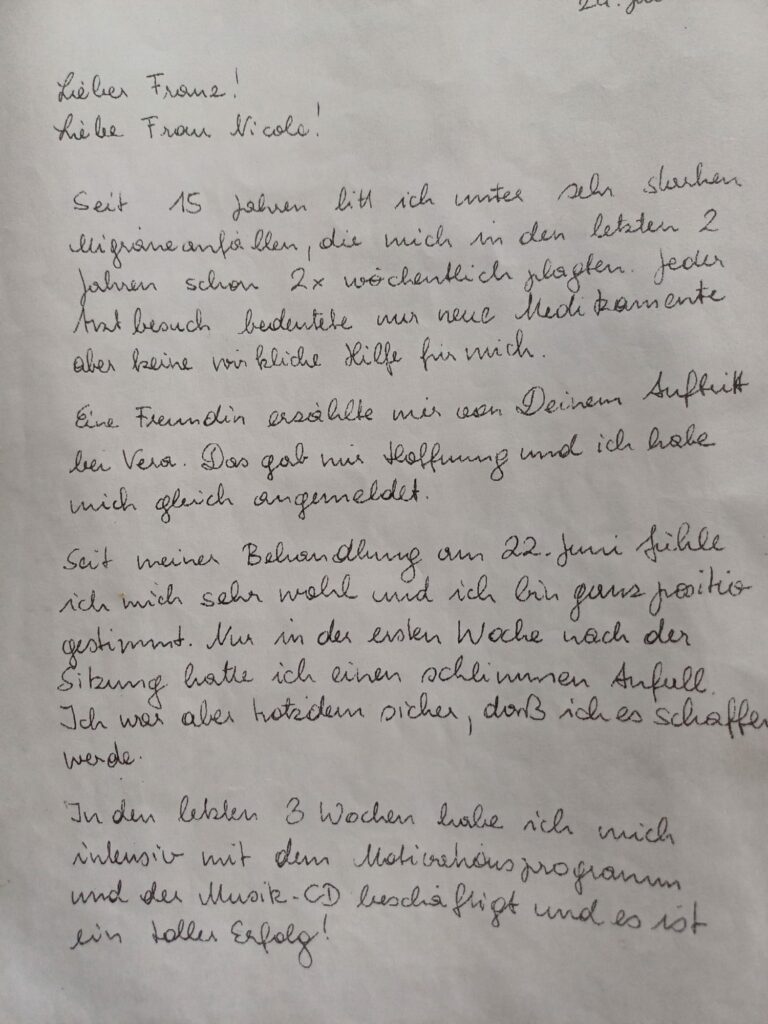 24. Ju
Lieber Franz!
Liebe Frau Nicole!
Seit 15 Jahren litt ich unter sehr starken
Migräneanfällen, die mich in den letzten 2
Jahren schon 2x wöchentlich plagten. Jeder
Arztbesuch bedeutete nur neue Medikamente
aber keine wirkliche Hilfe für mich.
Eine Freundin erzählte mir von Deinem Auftritt
bei Vera. Das gab mir Hoffnung und ich habe
mich gleich angemeldet.
Seit meiner Behandlung am 22. Juni fühle
ich mich sehr wohl und ich bin ganz positiv
gestimmt. Nur in der ersten Woche nach der
Sitzung hatte ich einen schlimmen Anfall.
Ich war aber trotzdem sicher, daß ich es schaffen
werde.
In den letzten 3 Wochen habe ich mich
intensiv mit dem Motivationsprogramm
und der Musik-CD beschäftigt und es ist
ein toller Erfolg!